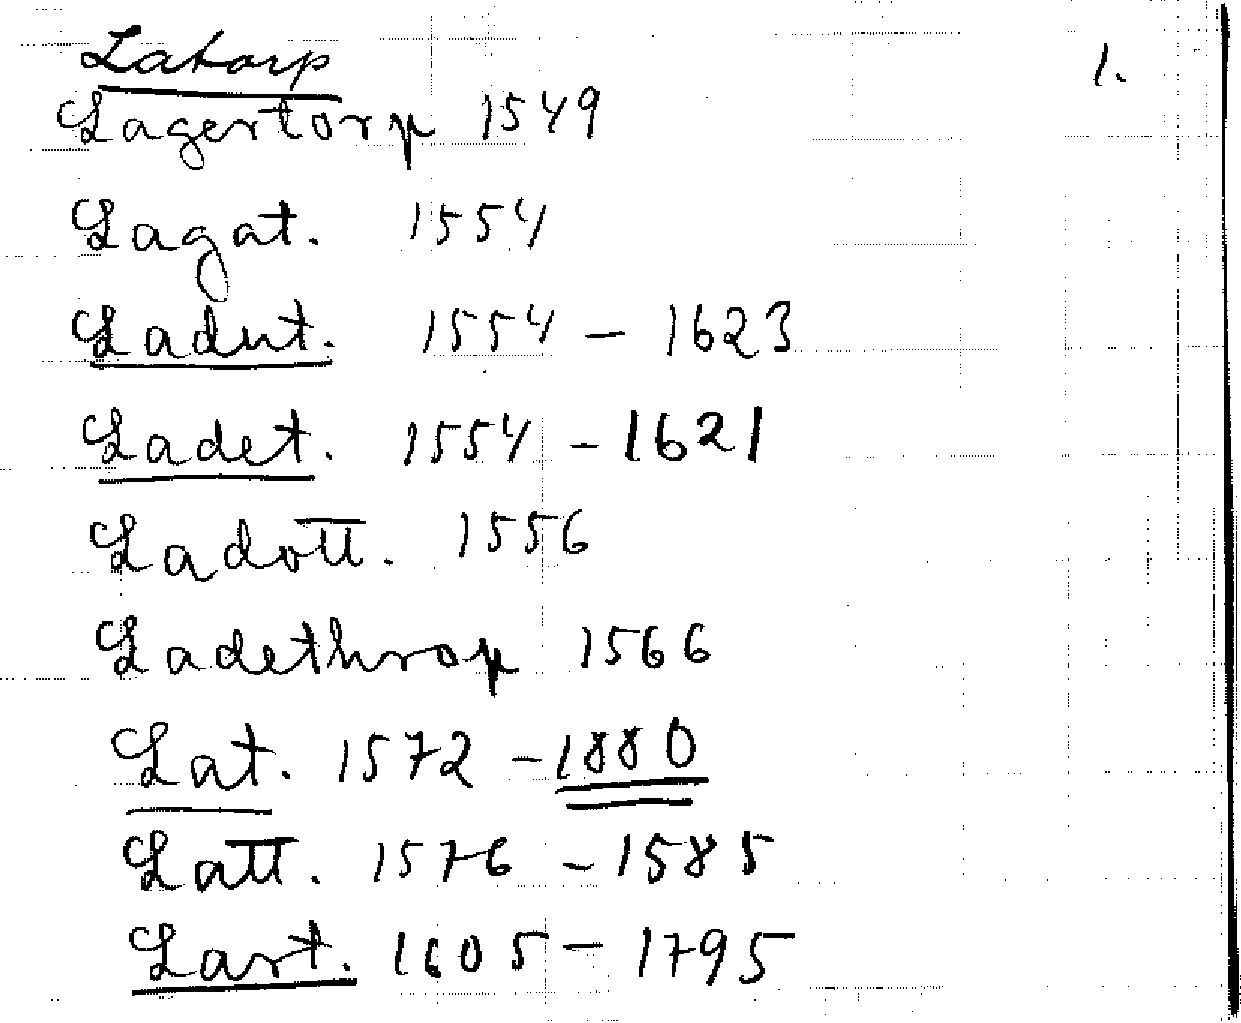 Latorp
1.
Lagertorp 1549
Lagat. 1554
Ladut. 1554 - 1623
Ladet. 1554 - 1621
Ladott. 1556
Ladethrop 1566
Lat. 1572 - 1880
Latt. 1576 - 1585
Lart. 1605 - 1795